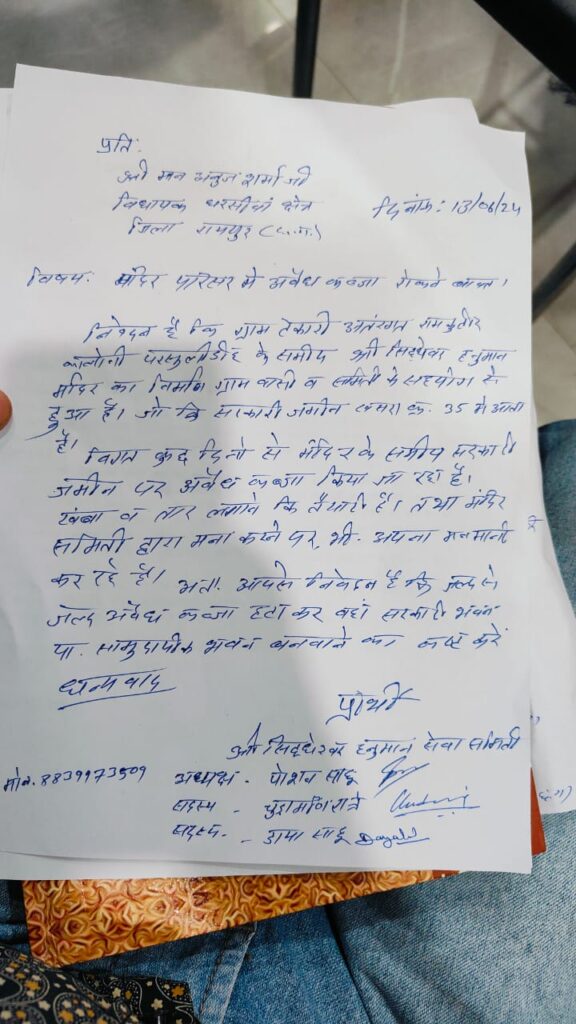 प्रति:
श्री मान अनुज शर्मा जी
विधायक धरसींवा क्षेत्र
जिला रायपुर (छ.ग.)
दिनांक: 13/06/24
विषय: मंदिर परिसर में अवैध कब्जा रोकने बाबत।
निवेदन है कि ग्राम टेकारी अंतरगत रामकुटीर
कालोनी परसुलीडीह के समीप श्री सिद्धेश्वर हनुमान
मंदिर का निर्माण ग्राम वासी व समिति के सहयोग से
हुआ है। जो कि सरकारी जमीन खसरा क्र. 35 में आता
है।
विगत कुछ दिनों से मंदिर के समीप सरकारी
जमीन पर अवैध कब्जा किया जा रहा है।
खंबा व तार लगाने कि तैयारी है। तथा मंदिर
समिती द्वारा मना करने पर भी अपना मनमानी
कर रहे है। अतः आपसे निवेदन है कि जल्द से
जल्द अवैध कब्जा हटा कर वहां सरकारी भवन
या सामुदायिक भवन बनवाने का कष्ट करें
धन्यवाद
प्रार्थी
श्री सिद्धेश्वर हनुमान सेवा समिती
मोब. 8839973509
अध्यक्ष - पोशन साहू
सदस्य - चुड़ामणि रात्रे
सदस्य - डाया साहू Dayalal